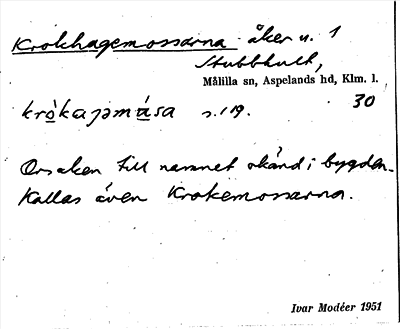 Krokhagemossarna åker u. 1
Stubbhult,
Målilla sn, Aspelands hd, Klm. l.
30
kròkaʒəmása s. 119.
Orsaken till namnet okänd i bygden.
Kallas även Krokemossarna.
Ivar Modéer 1951